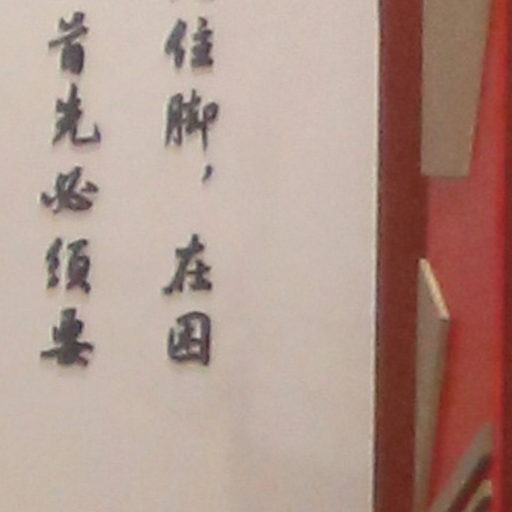 住脚，在国
首先必须要